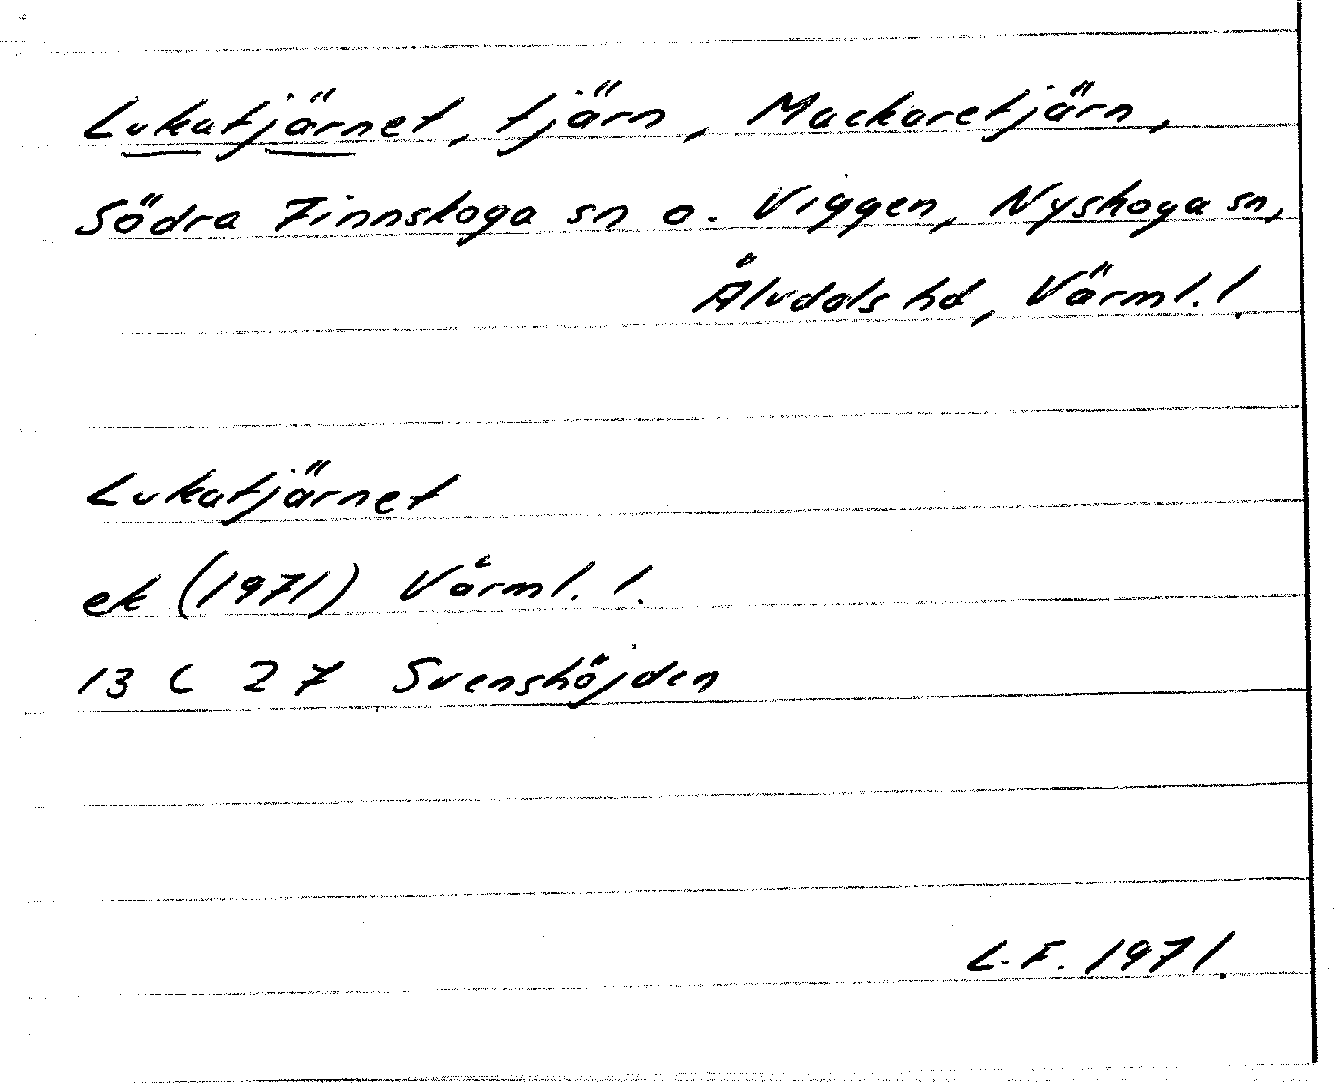 Lukatjärnet, tjärn, Mackaretjärn,
Södra Finnskoga sn o. Viggen, Nyskoga sn,
Älvdals hd, Värml. l.
Lukatjärnet
ek (1971) Värml. l.
13 C 27 Svenshöjden
L.F. 1971.